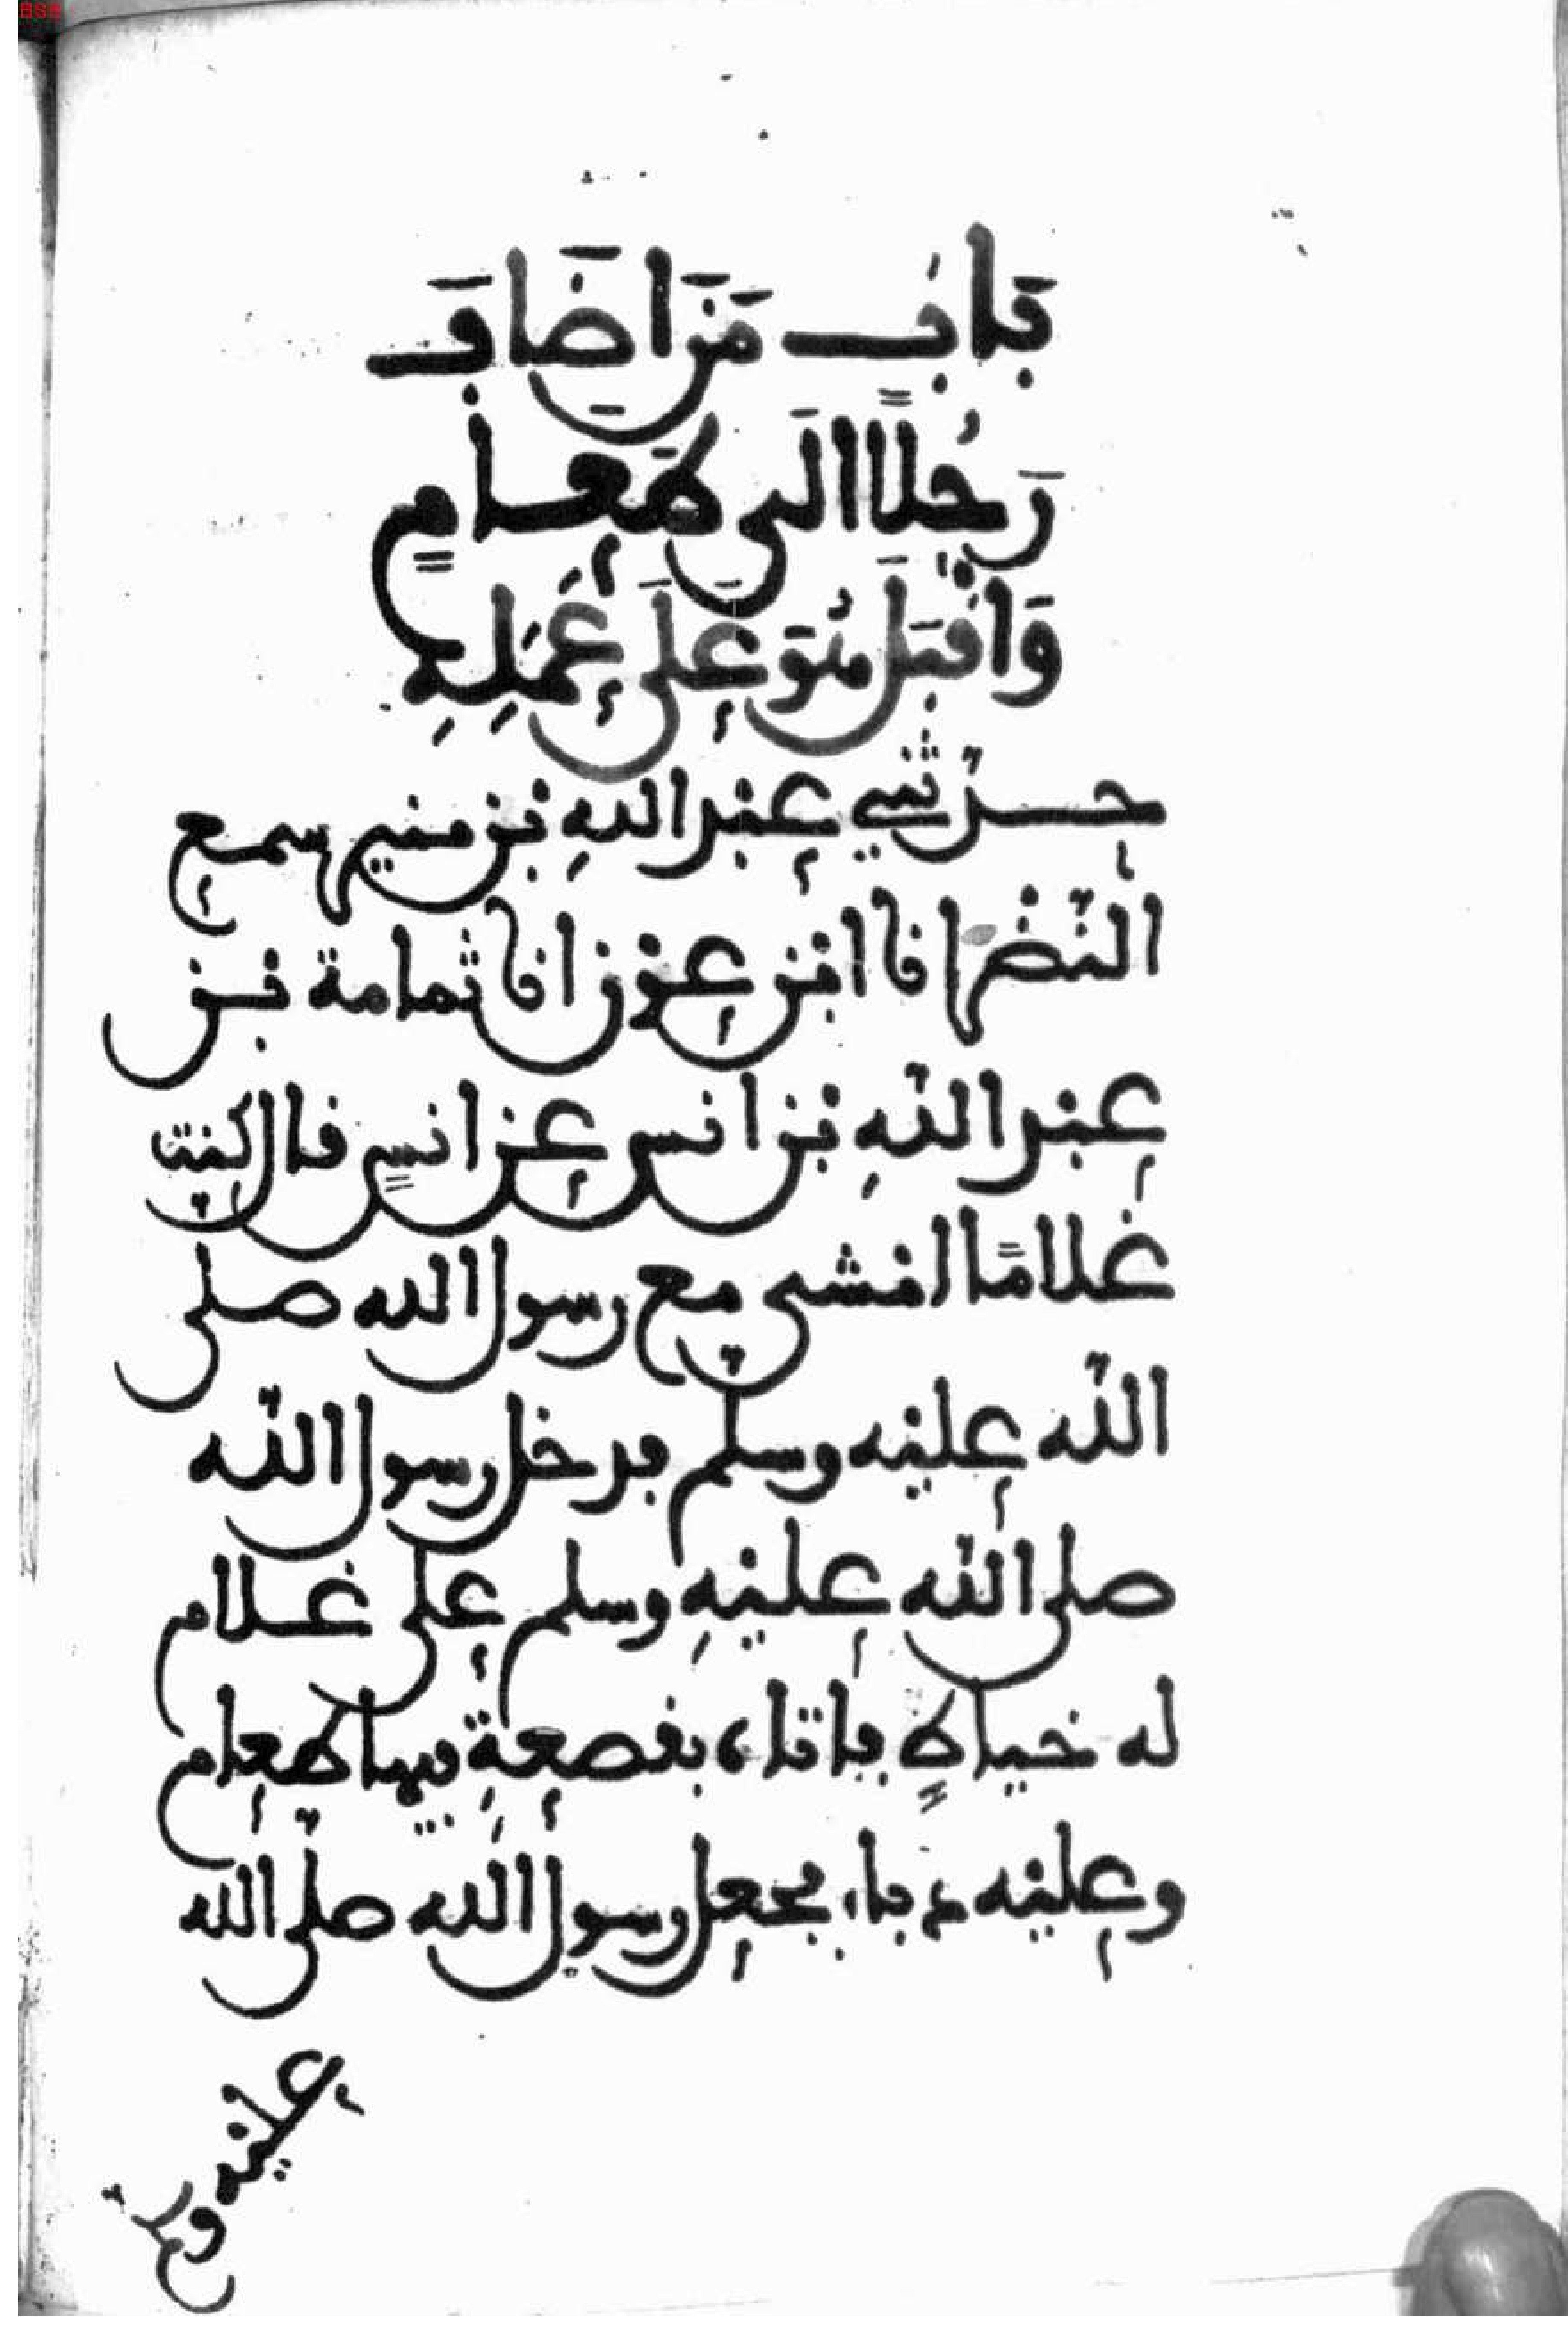 BSB
بَابُ مَنْ اَضَافَ
رَجُلًا اِلَى طَعَامٍ
وَاَقْبَلَ هُوَ عَلَى عَمَلِهِ
حدثني عبد الله بن منير سمع
النضر انا ابن عون انا ثمامة بن
عبد اللهِ بن انس عن انسٍ قال كنت
غلامًا امشى مع رسول الله صلى
الله عليه وسلم فدخل رسول الله
صلى الله عليهِ وسلم على غلام
له خياطٍ فاتاه بقصعةٍ فيها طعام
وعليه دباء فجعل رسول الله صلى الله
عليه وسلم